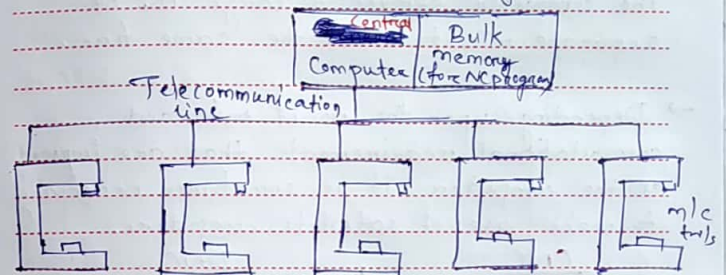 Central
Computer
Bulk
memory
(for NC program)
Telecommunication
line
m/c
tools